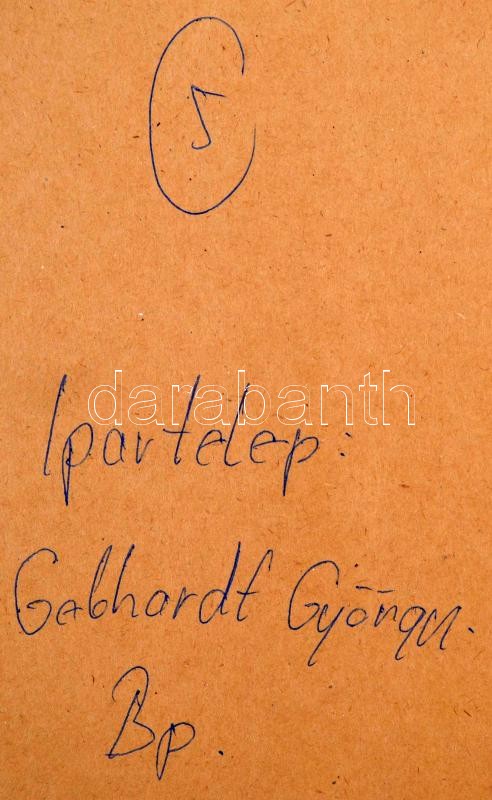 5
darabanth
Ipartelep:
Gebhardt György.
Bp.